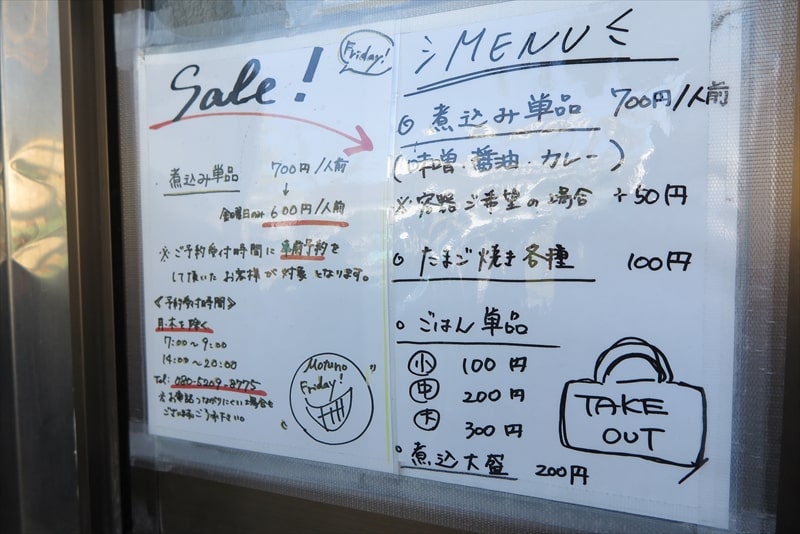 Sale!
Friday!
煮込み単品 700円/人前
↓
金曜日のみ 600円/人前
※ご予約受付時間に事前予約を
して頂いたお客様が対象となります。
《予約受付時間》
月・木を除く
7:00〜9:00
14:00〜20:00
Tel: 080-5209-8775
※お電話つながりにくい場合も
ございますご了承下さい。
Motuno
Friday!
MENU
◎煮込み単品 700円/人前
(味噌・醤油・カレー)
※容器ご希望の場合 +50円
○たまご焼き各種 100円
○ごはん単品
小 100円
中 200円
大 300円
○煮込大盛 200円
TAKE
OUT